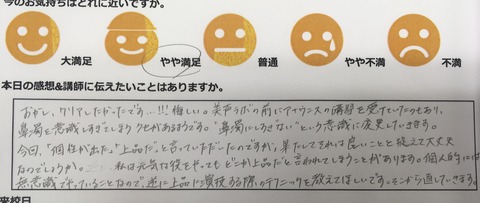 今のお気持ちはどれに近いですか。
大満足 やや満足 普通 やや不満 不満
本日の感想&講師に伝えたいことはありますか。
クリアしたかったです…!!! 悔しい。美声ラボの前にアナウンスの講習を受けていたのもあり、
鼻濁を意識しすぎてしまうクセがあるようです。"鼻濁にしすぎない"という意識に変更していきます。
今回、"個性が出た""上品だ"と言っていただいたのですが、 良いことと捉えて大丈夫
なのでしょうか。 私は元気な役をやってもどこか上品だと言われてしまうことがあります。個人的には
無意識でやっていることなので、逆に上品に 際のテクニックを教えてほしいです。そこから直していきます。
来校日